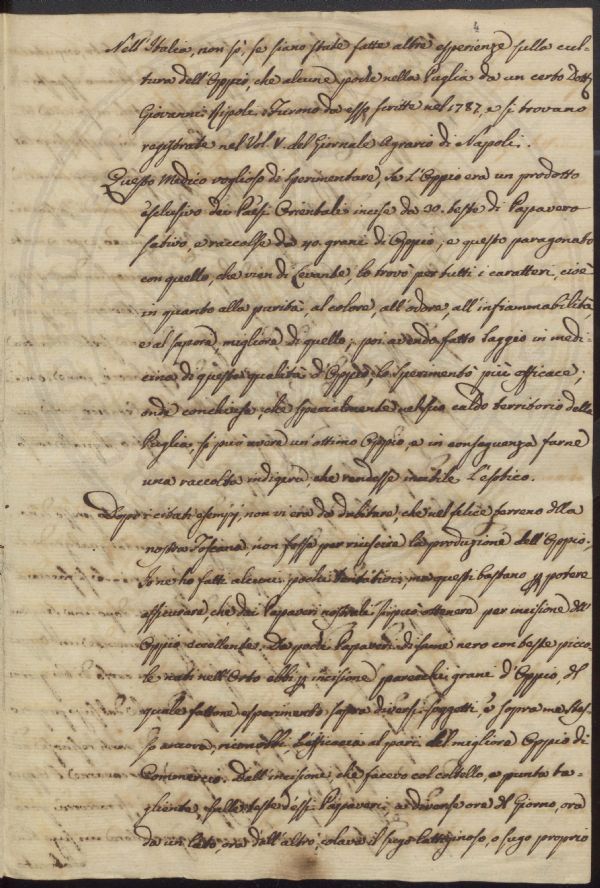 4
Nell'Italia, non sò, se siano state fatte altre esperienze sulla cul-
tura dell'Oppio, che alcune poche nella Puglia da un certo Dott.
Giovanni Ripoli. Furono da esso scritte nel 1787, e si trovano
registrate nel Vol. V. del Giornale Agrario di Napoli.
Questo Medico voglioso di sperimentare, se l'Oppio era un prodotto
esclusivo dei Paesi Orientali incise da 30. teste di Papavero
sativo, e raccolse da 40. grani di Oppio; e questo paragonato
con quello, che vien di Levante, lo trovò per tutti i caratteri, cioè
in quanto alla purità, al colore, all'odore, all'infiammabilità
e al sapore migliore di quello; poi avendo fatto saggio in medi-
cina di questa qualità d'Oppio, lo sperimentò più efficace;
onde conchiuse, che specialmente nel caldo territorio della
Puglia, si può avere un'ottimo Oppio, e in conseguenza farne
una raccolta indigena che rendesse inutile l'esotico.
Dopo i citati esempj, non vi era da dubitare, che nel felice terreno della
nostra Toscana, non fosse per riuscire la produzione dell'Oppio.
Io ne ho fatti alcuni pochi tentativi, ma questi bastano per potere
assicurare, che dai Papaveri nostrali si può ottenere per incisione dell'
Oppio eccellente. Da pochi Papaveri di seme nero con teste picco-
le nati nell'Orto ebbi per incisione parecchi grani d'Oppio, del
quale fattone esperimento sopra diversi soggetti, e sopra me stes-
so ancora, riconobbi l'efficacia al pari del migliore Oppio di
Commercio. Dall'incisione, che facevo col coltello, a punta ta-
gliente, sulle teste d'essi Papaveri a diverse ore del Giorno, ora
da un lato, ora dall'altro, colava il sugo lattiginoso, o sugo proprio